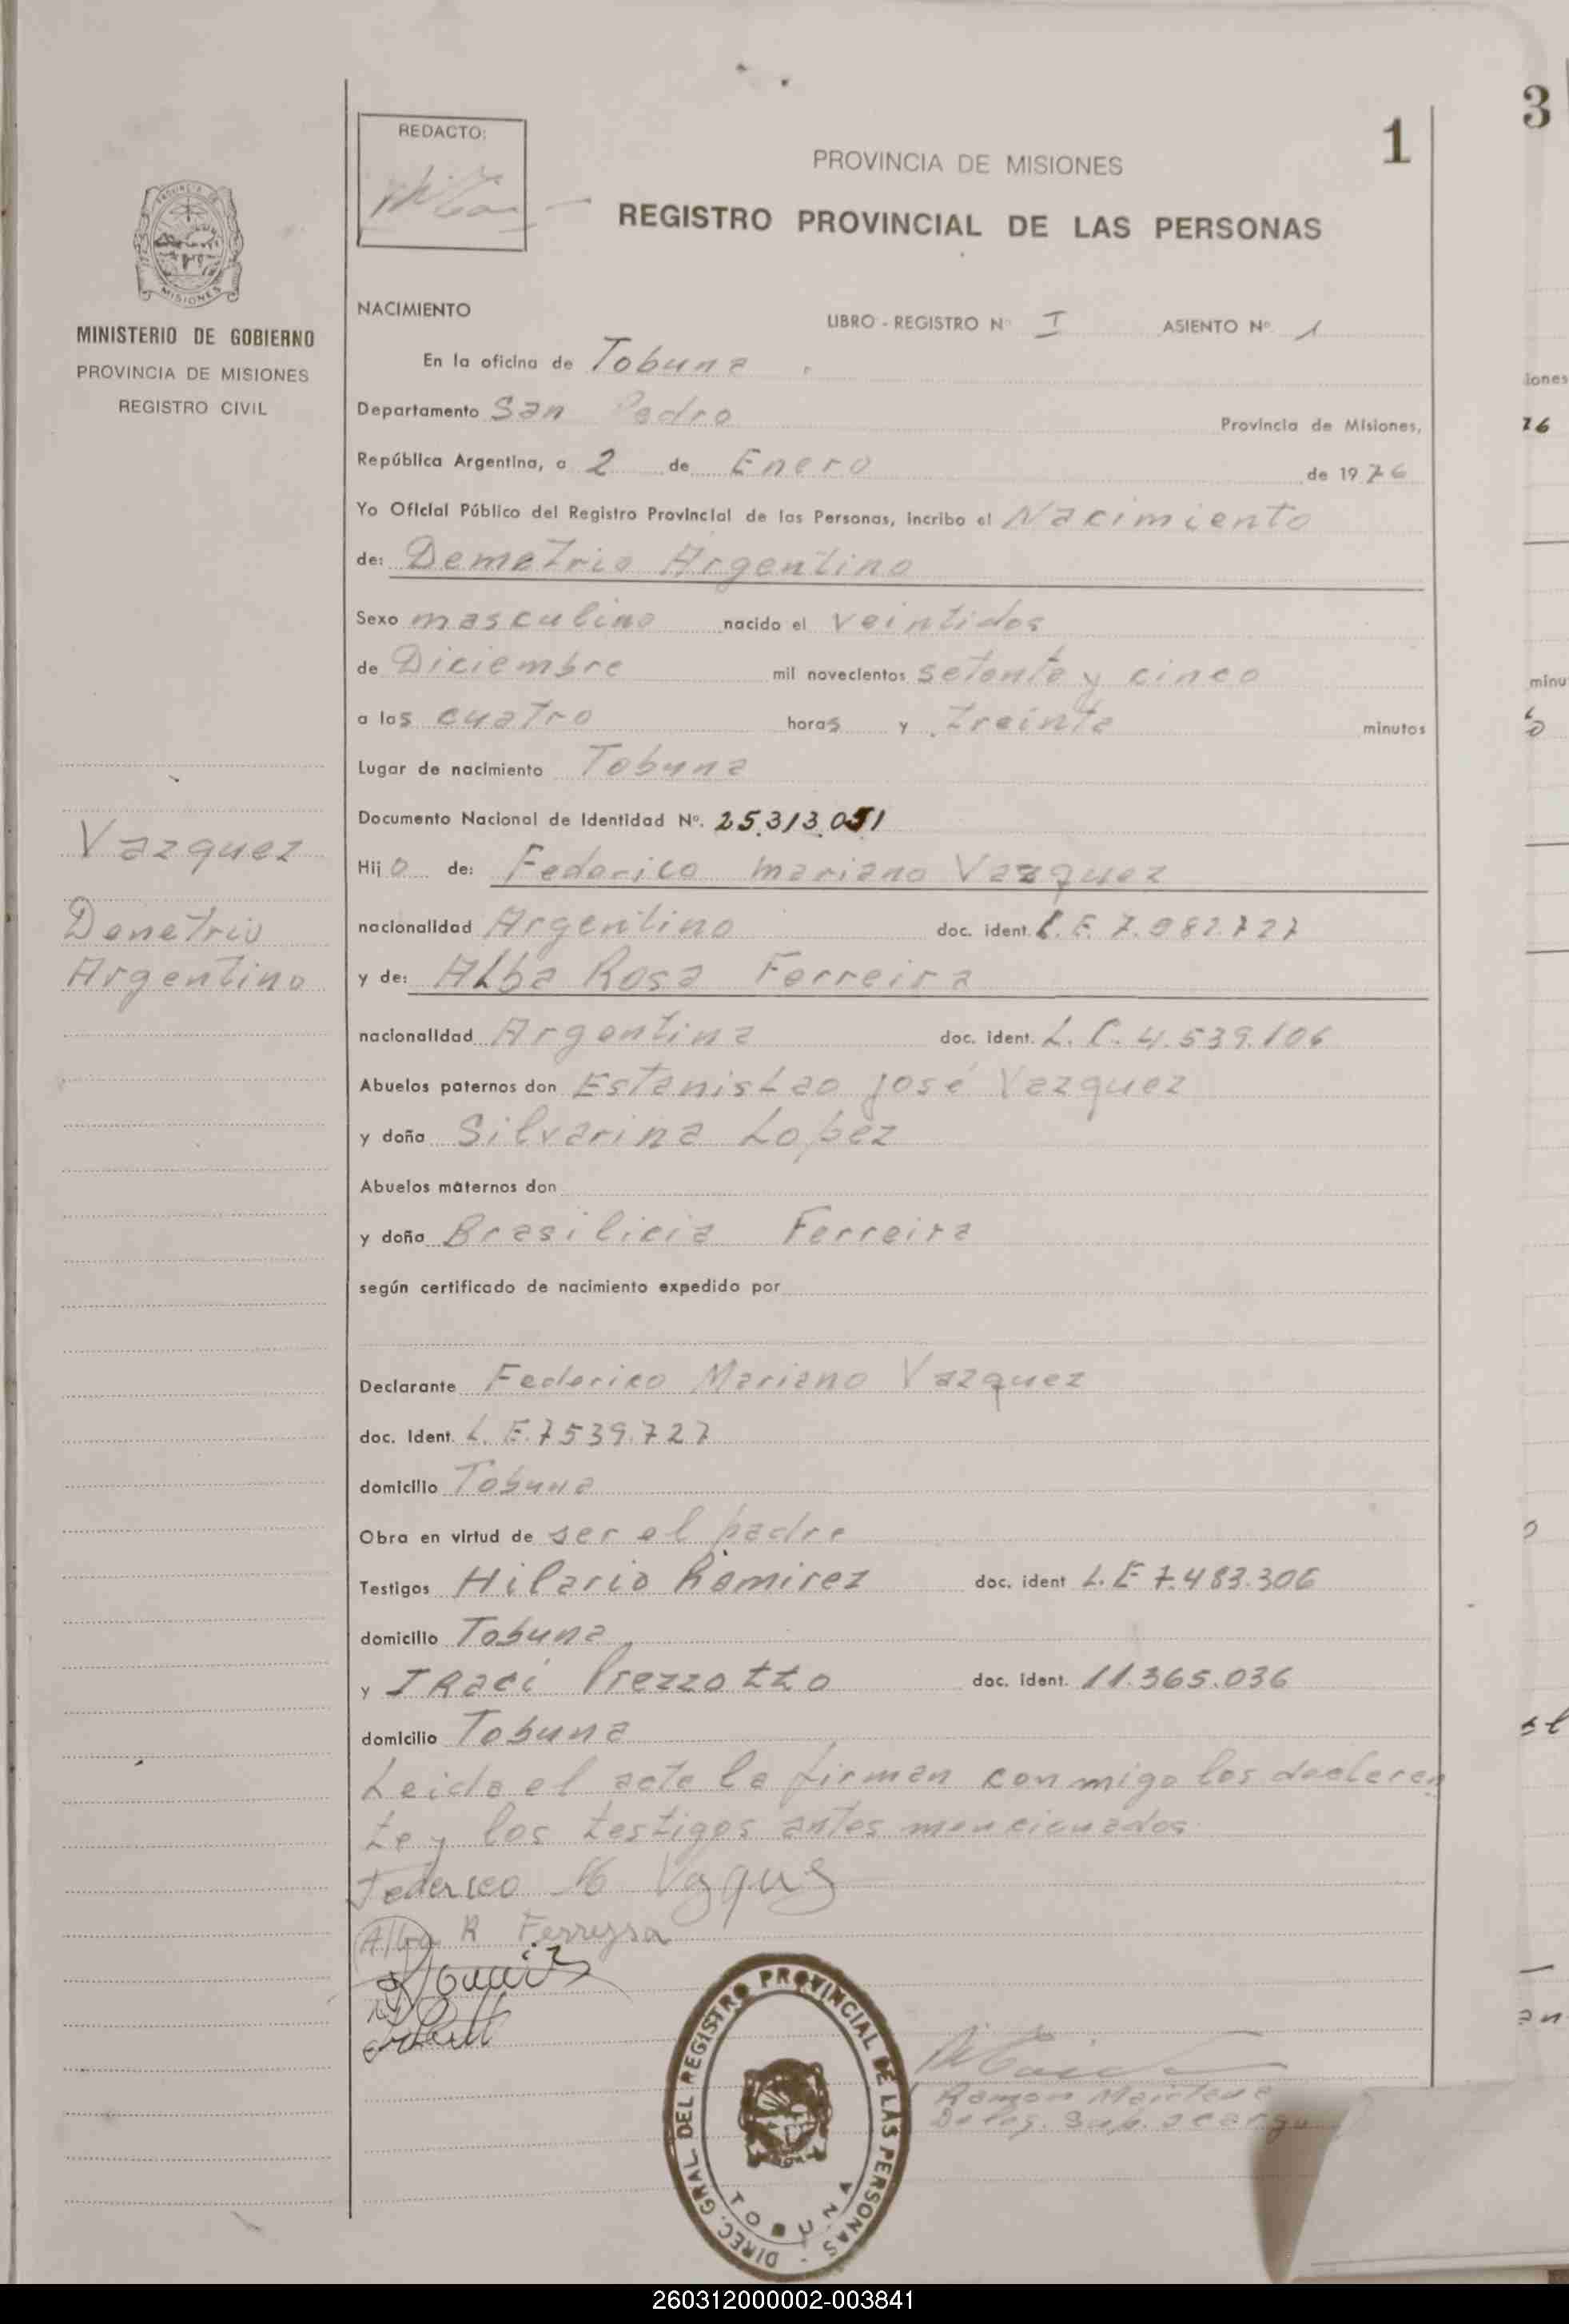 3
1
REDACTO:
PROVINCIA DE MISIONES
REGISTRO PROVINCIAL DE LAS PERSONAS
PROVINCIA DE
MISIONES
MINISTERIO DE GOBIERNO
PROVINCIA DE MISIONES
REGISTRO CIVIL
NACIMIENTO LIBRO - REGISTRO Nº I ASIENTO Nº 1
En la oficina de Tobuna
Departamento San Pedro Provincia de Misiones,
República Argentina, a 2 de Enero de 1976
Yo Oficial Público del Registro Provincial de las Personas, incribo el Nacimiento
de: Demetrio Argentino
Sexo masculino nacido el veintidos
de Diciembre mil novecientos setenta y cinco
a las cuatro horas y treinta minutos
Lugar de nacimiento Tobuna
Documento Nacional de Identidad Nº. 25.313.051
Hijo de: Federico Mariano Vazquez
nacionalidad Argentino doc. ident. L.E. 7.982.727
y de: Alba Rosa Ferreira
nacionalidad Argentina doc. ident. L.C. 4.539.106
Abuelos paternos don Estanislao José Vazquez
y doña Silvarina Lopez
Abuelos maternos don
y doña Brasilicia Ferreira
según certificado de nacimiento expedido por
Declarante Federico Mariano Vazquez
doc. Ident. L.E. 7539.727
domicilio Tobuna
Obra en virtud de ser el padre
Testigos Hilario Ramirez doc. ident L.E 7.483.306
domicilio Tobuna
y IRaci Prezzotto doc. ident. 11.365.036
domicilio Tobuna
Leida el acta la firman conmigo los declaran
te y los testigos antes mencionados
Federico M Vazquez
Alba R Ferreyra
Vazquez
Demetrio
Argentino
DIREC. GRAL. DEL REGISTRO PROVINCIAL DE LAS PERSONAS -
TOBUNA
Ramon
Deleg. Sup. a cargo
iones
76
minu
260312000002-003841